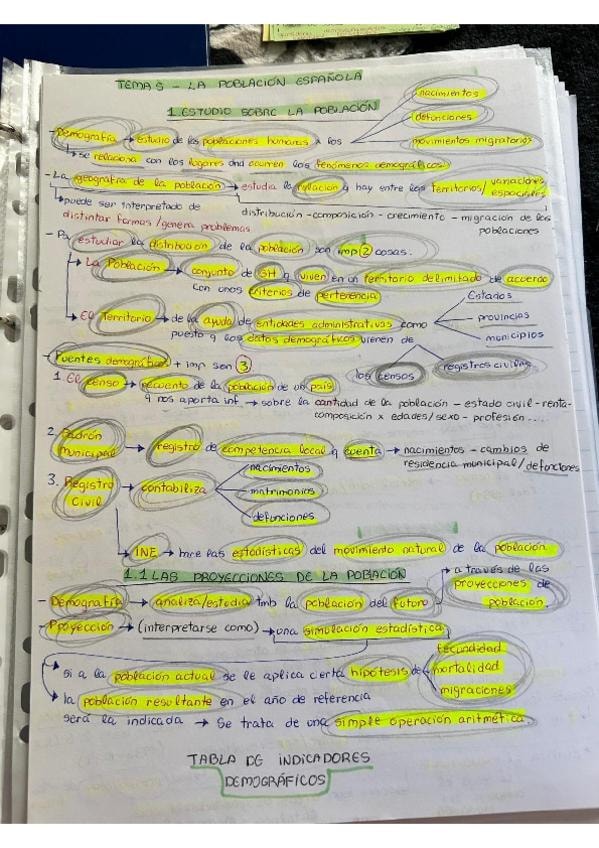 TEMA 5 - LA POBLACIÓN ESPAÑOLA
1. ESTUDIO SOBRE LA POBLACIÓN
- Demografía → estudio de las poblaciones humanas x los
nacimientos
defunciones
movimientos migratorios
↳ se relaciona con los lugares dnd ocurren los fenómenos demográficos.
- La geografía de la población → estudia la relación q hay entre los territorios/ variaciones espaciales
↳ puede ser interpretado de distintar formas /genera problemas
distribución - composición - crecimiento - migración de las poblaciones
- Pa estudiar la distribución de la población son imp 2 cosas.
↳ La Población → conjunto de SH q viven en un territorio delimitado de acuerdo
con unos criterios de pertenencia
↳ El Territorio → de la ayuda de entidades administrativas como
Estados
- provincias
- municipios
puesto q los datos demográficos vienen de
los censos
registros civiles
- Fuentes demográficas + imp son 3
1. El censo → recuento de la población de un país
q nos aporta inf → sobre la cantidad de la población - estado civil - renta-
composición x edades/sexo - profesión....
2. Padrón municipal → registro de competencia local q cuenta → nacimientos - cambios de
residencia municipal/defunciones
3. Registro Civil → contabiliza
nacimientos
matrimonios
defunciones
↳ INE → hace las estadísticas del movimiento natural de la población
1.1 LAS PROYECCIONES DE LA POBLACIÓN
- Demografía → analiza/estudia tmb la población del futuro
→ a través de las
proyecciones de
población.
- Proyección → (interpretarse como) → una simulación estadística
→ si a la población actual se le aplica cierta hipótesis de
fecundidad
mortalidad
migraciones
→ la población resultante en el año de referencia
será la indicada → Se trata de una simple operación aritmética.
TABLA DE INDICADORES
DEMOGRÁFICOS